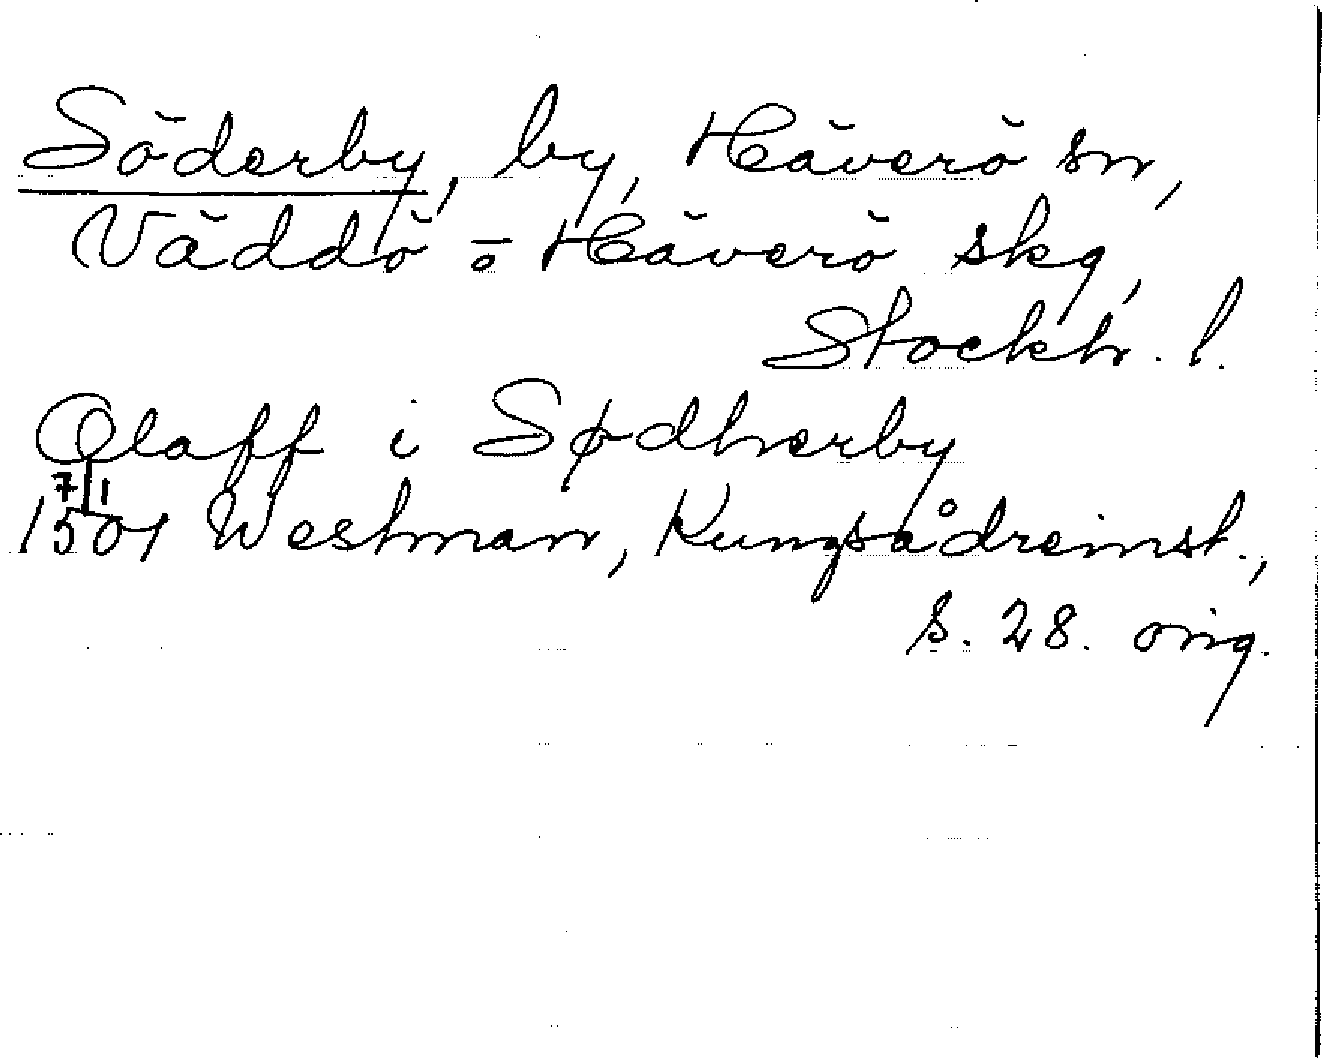 Söderby, by, Häverö sn,
Väddö o Häverö skg,
Stockh. l.
Olaff i Sødherby
7/1
1501 Westman, Kungsådreinst.,
s. 28. orig.